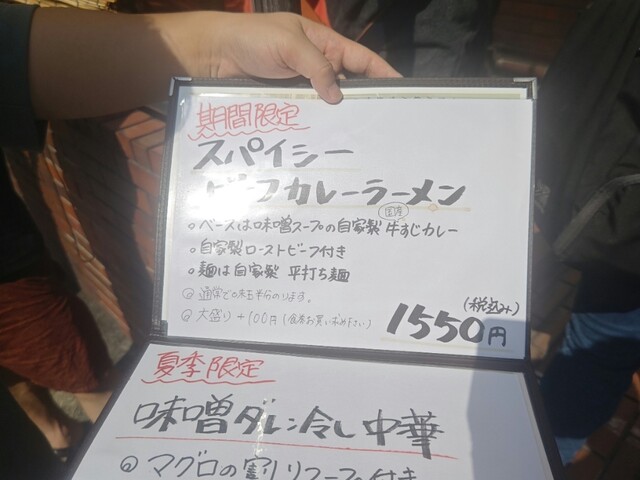 期間限定
スパイシー
ビーフカレーラーメン
国産
◦ベースは味噌スープの自家製 牛すじカレー
◦自家製ローストビーフ付き
◦麺は自家製 平打ち麺
通常 味玉半分のります。
大盛り +100円(食券お買い求め下さい)
(税込み)
1550円
夏季限定
味噌ダレ冷し中華
マグロの割りスープ付き